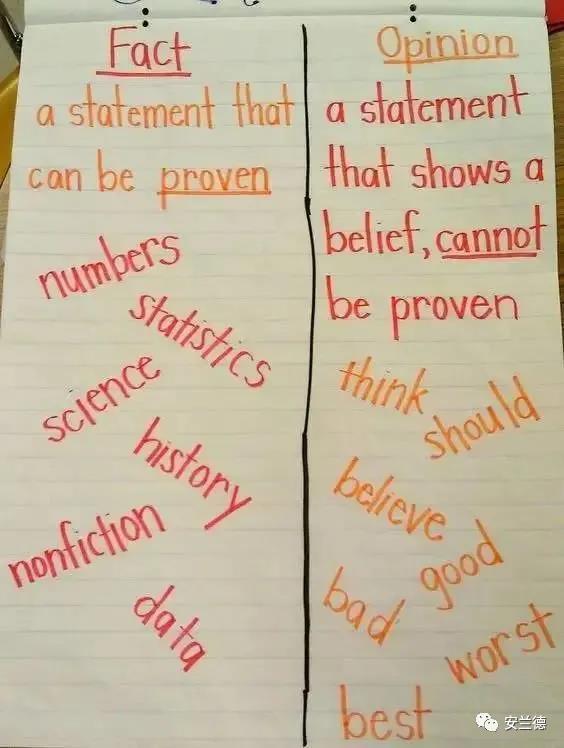 Fact
a statement that
can be proven
numbers
statistics
science
history
nonfiction
data
Opinion
a statement
that shows a
belief, cannot
be proven
think
should
believe
good
bad
worst
best
安兰德